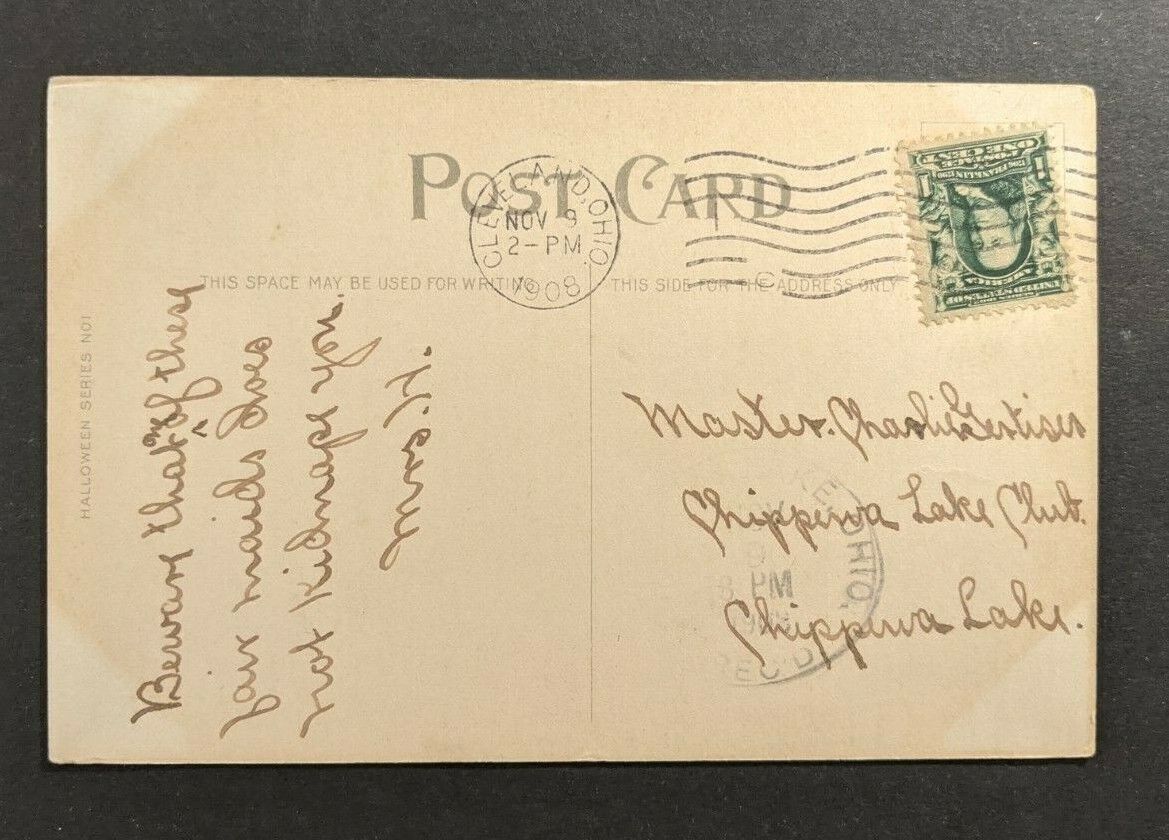 POST CARD
CLEVELAND, OHIO.
NOV 9
2-PM
1908
THIS SPACE MAY BE USED FOR WRITING
THIS SIDE FOR THE ADDRESS ONLY
ONE CENT
1 1
FRANKLIN
AMERICA
UNITED STATES OF
HALLOWEEN SERIES NO1
Beware that one of these
fair maids does
not kidnape you.
Mrs. H.
Master. Charlie Gertiser
Chippewa Lake Club.
Chippewa Lake.
OHIO,
PM
REC'D.